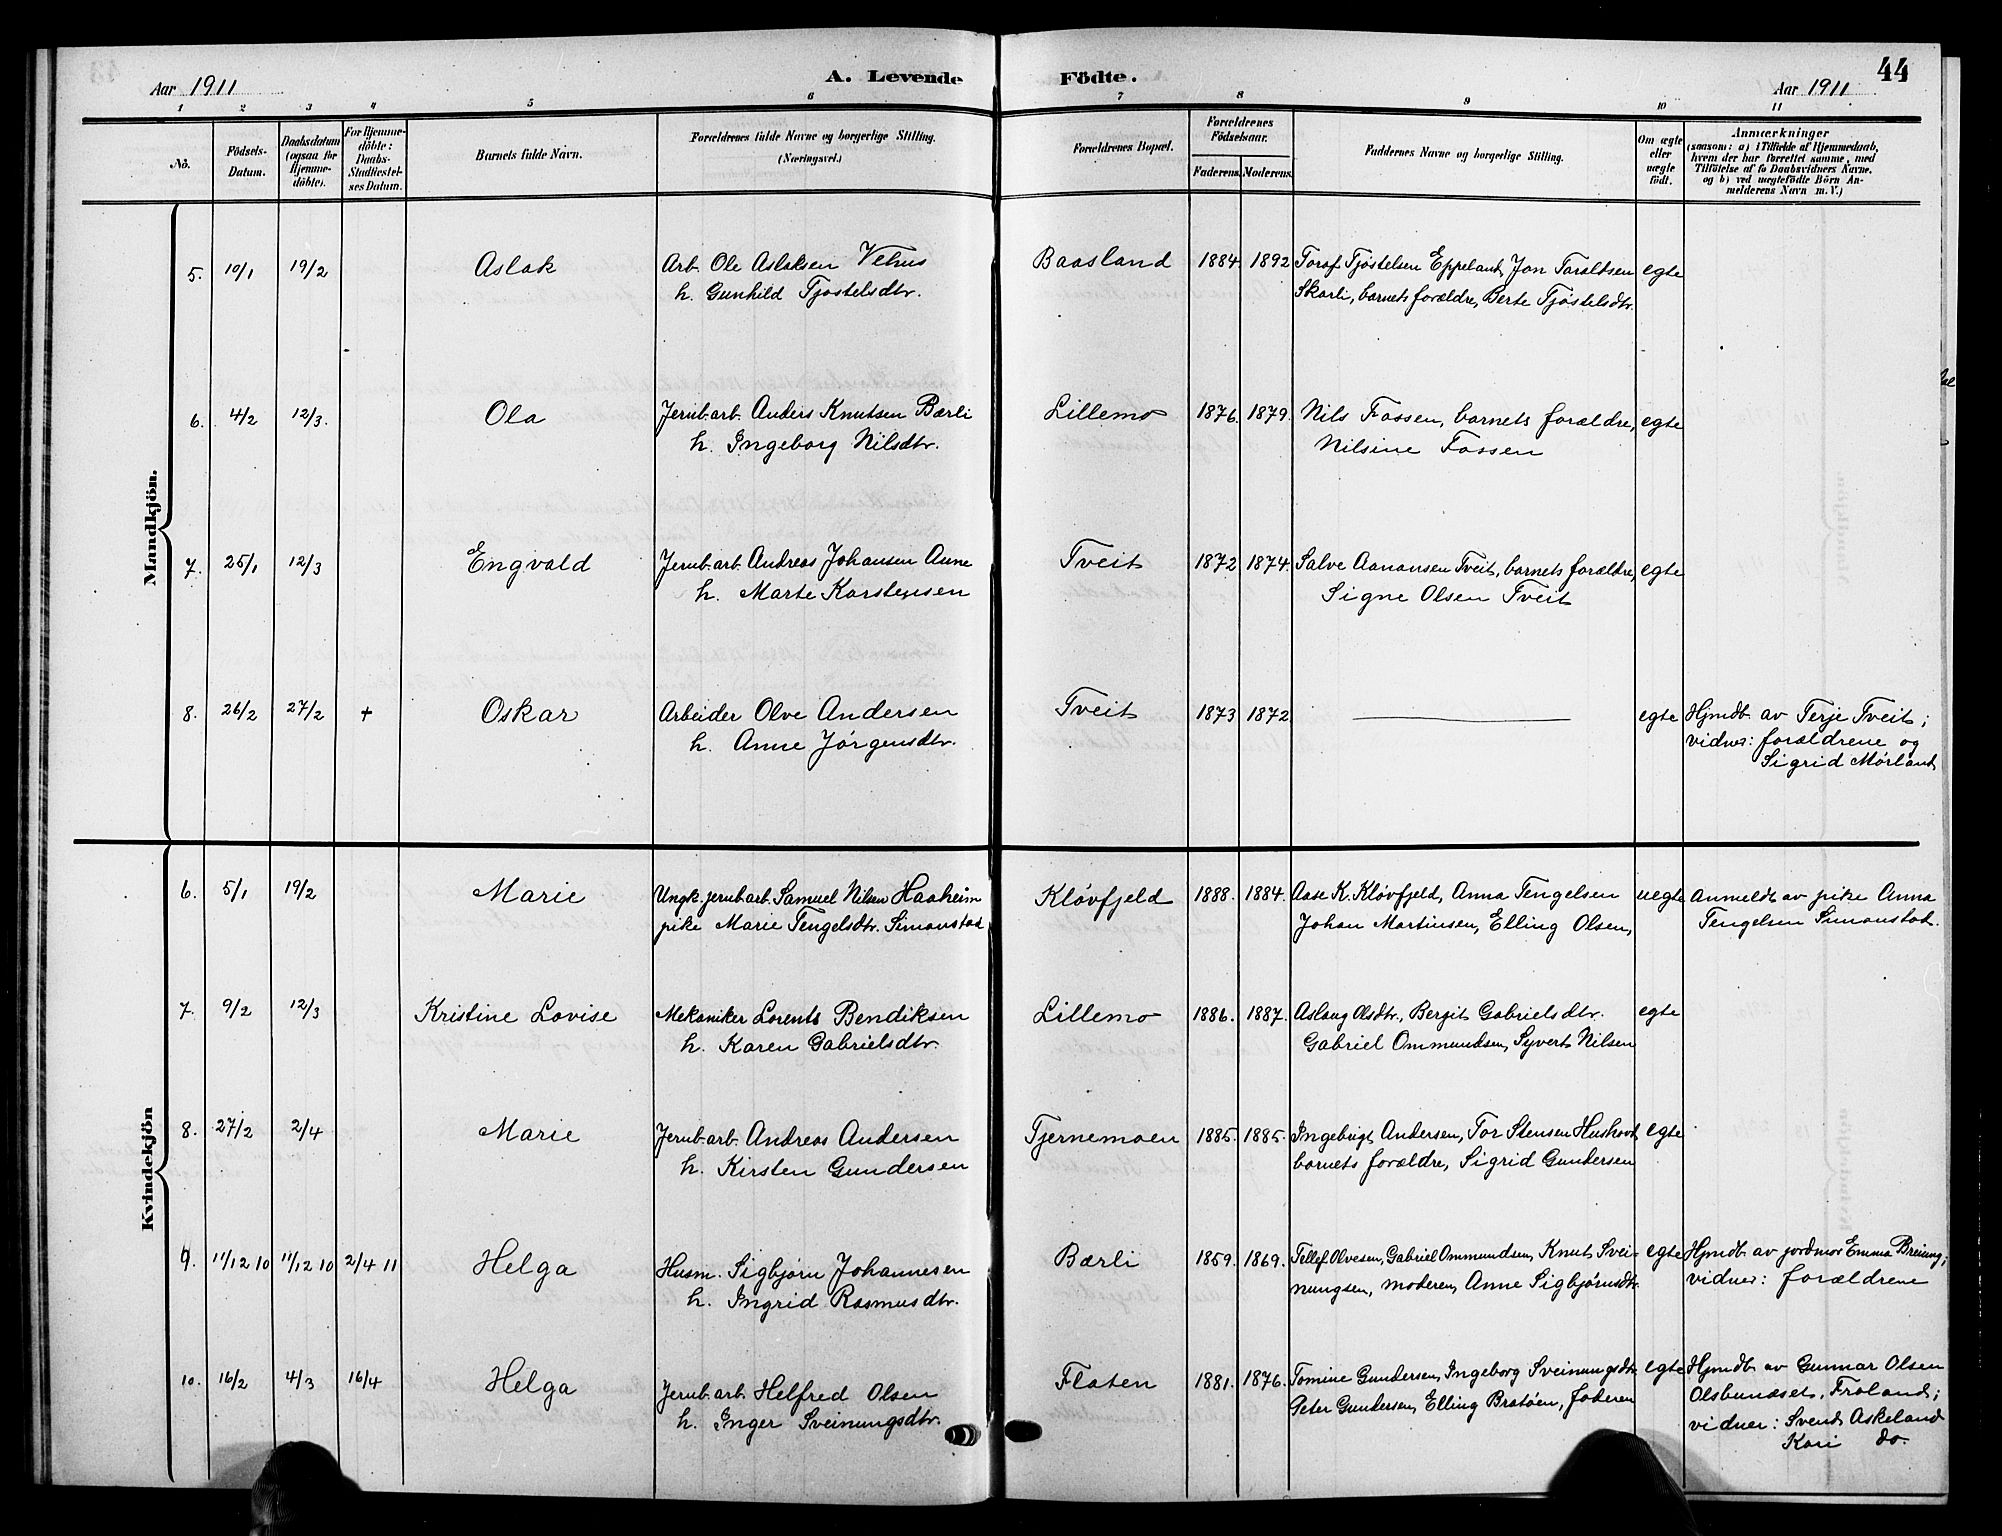 Aar 1911 A. Levende Födte. Aar 1911 44
1 2 3 4 5 6 7 8 9 10 11
No. Födsels-Datum. Daabsdatum (ogsaa for Hjemme-döbte). For Hjemme-döbte: Daabs-Stadfæstel-ses Datum. Barnets fulde Navn. Forældrenes fulde Navne og borgerlige Stilling. (Næringsvei.) Forældrenes Bopæl. Forældrenes Födselsaar. Faderens. Moderens. Faddernes Navne og borgerlige Stilling. Om ægte eller uægte födt. Anmærkninger (saasom: a) i Tilfælde af Hjemmedaab, hvem der har forrettet samme, med Tilföielse af to Daabsvidners Navne, og b) ved uægtefödte Börn An-melderens Navn m. V.)
Mandkjön.
5. 10/1 19/2 Aslak Arb. Ole Aslaksen Vehus Baasland 1884. 1892 Toraf Tjøstelsen Eppeland, Jon Taraldsen egte
h. Gunhild Tjøstelsdtr. Skarli, barnets forældre, Berte Tjøstelsdtr.
6. 4/2 12/3. Ola Jernb.arb. Anders Knutsen Bærli Lillemo 1876. 1879. Nils Fossen, barnets forældre, egte
h. Ingeborg Nilsdtr. Nilsine Fossen
7. 25/1 12/3 Engvald Jernb.arb. Andreas Johansen Aune Tveit 1872 1874. Salve Aanonsen Tveit, barnets forældre, egte
h. Marte Karstensen Signe Olsen Tveit
8. 26/2 27/2 + Oskar Arbeider Olve Andersen Tveit 1873 1872 egte Hjmdb. av Terje Tveit;
h. Anne Jørgensdtr. vidner: forældrene og
Sigrid Mørland
Kvindekjön
6. 5/1 19/2 Marie Ungk. jernb.arb. Samuel Nilsen Haaheim Kløvfjeld 1888. 1884. Aase K. Kløvfjeld, Anna Tengelsen uegte Anmeldt av pike Anna
pike Marie Tengelsdtr. Simonstad Johan Martinsen, Elling Olsen, Tengelsen Simonstad.
7. 9/2 12/3 Kristine Lovise Mekaniker Lorents Bendiksen Lillemo 1886. 1887. Aslaug Olsdtr., Bergit Gabrielsdtr. egte
h. Karen Gabrielsdtr. Gabriel Ommundsen, Syvert Nilsen
8. 27/2 2/4 Marie Jernb.arb. Andreas Andersen Tjernemoen 1885. 1885. Ingebrigt Andersen, Tor Stensen Hushovd egte
h. Kirsten Gundersen barnets forældre, Sigrid Gundersen
9. 11/12 10 11/12 10 2/4 11 Helga Husm. Sigbjørn Johannesen Bærli 1859. 1869. Tellef Olvesen, Gabriel Ommundsen, Knut Svei- egte Hjmdb. av jordmor Emma Breiung;
h. Ingrid Rasmusdtr. nungsen, moderen, Anne Sigbjørnsdtr. vidner: forældrene
10. 16/2 4/3 16/4 Helga Jernb.arb. Helfred Olsen Flaten 1881. 1876. Tomine Gundersen, Ingeborg Sveinungsdtr. egte Hjmdb. av Gunnar Olsen
h. Inger Sveinungsdtr. Peter Gundersen, Elling Bratøen, faderen Olsbunæset, Froland;
vidner: Svend Askeland
Kari do.